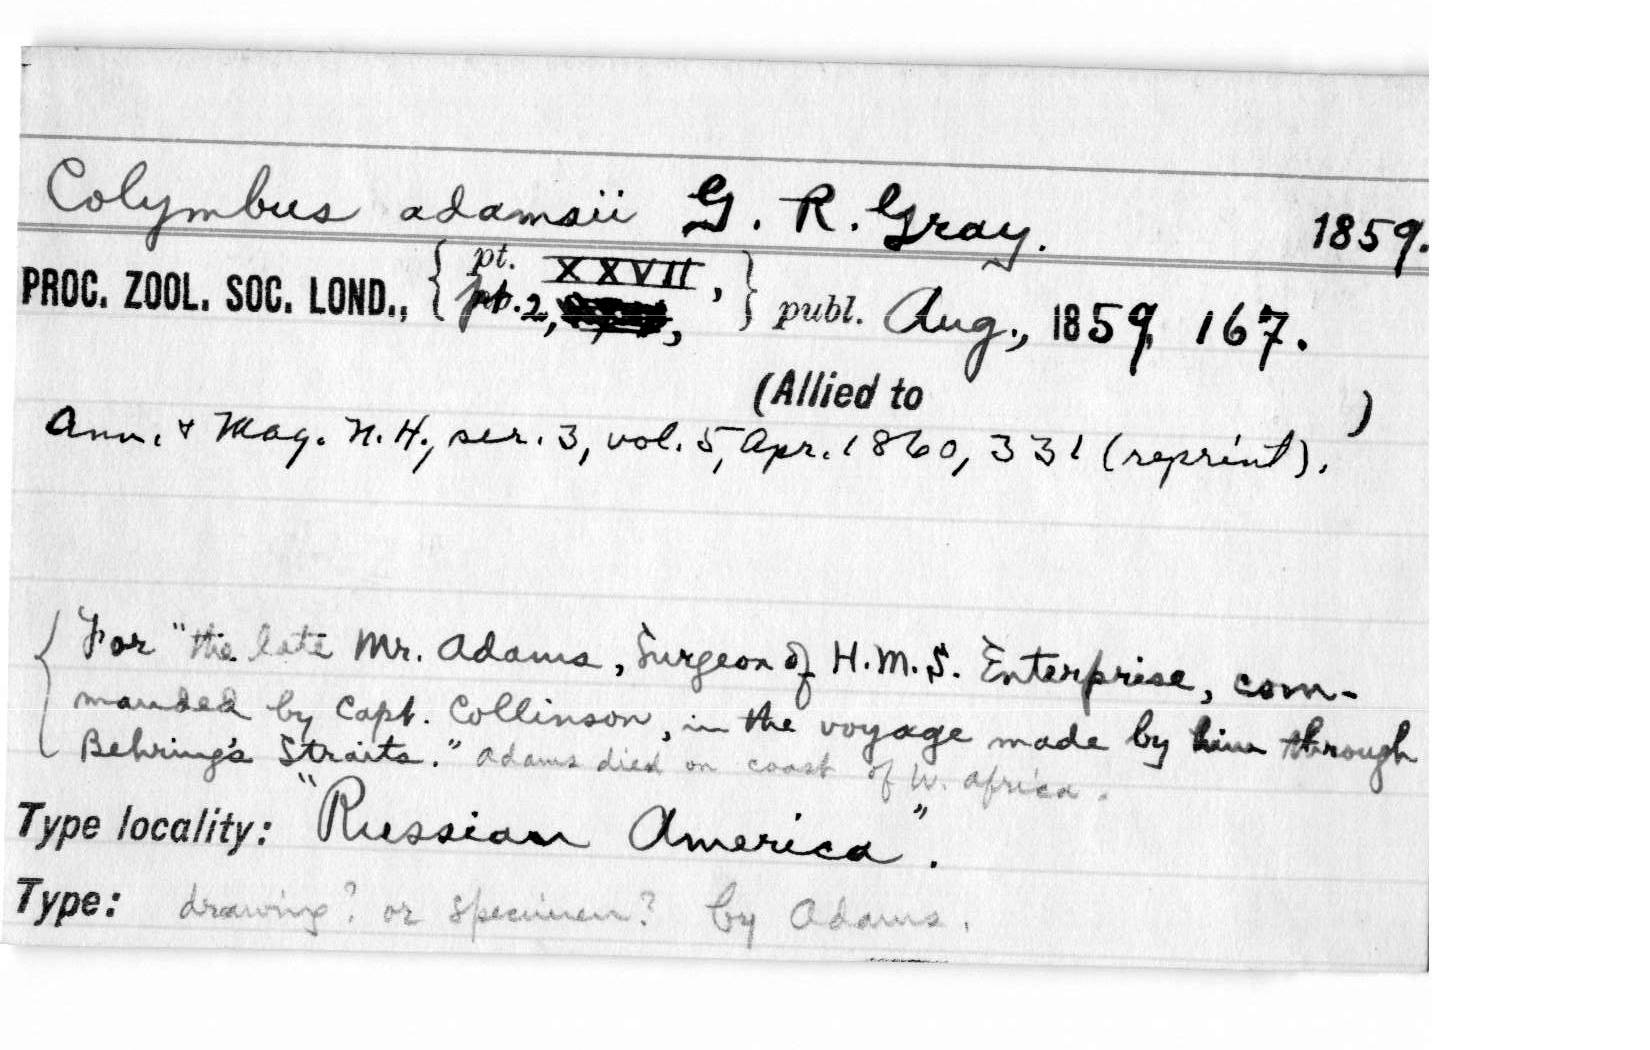 Colymbus adamsii G. R. Gray. 1859.
PROC. ZOOL. SOC. LOND., { pt. XXVII, } publ. Aug., 1859, 167.
pt. 2, ,
(Allied to )
Ann. & Mag. N. H., ser. 3, vol. 5, Apr. 1860, 331 (reprint).
{ For "the late Mr. Adams, Surgeon of H.M.S. Enterprise, com-
manded by Capt. Collinson, in the voyage made by him through
Behring's Straits." Adams died on coast of W. Africa.
Type locality: "Russian America".
Type: drawing? or specimen? by Adams.